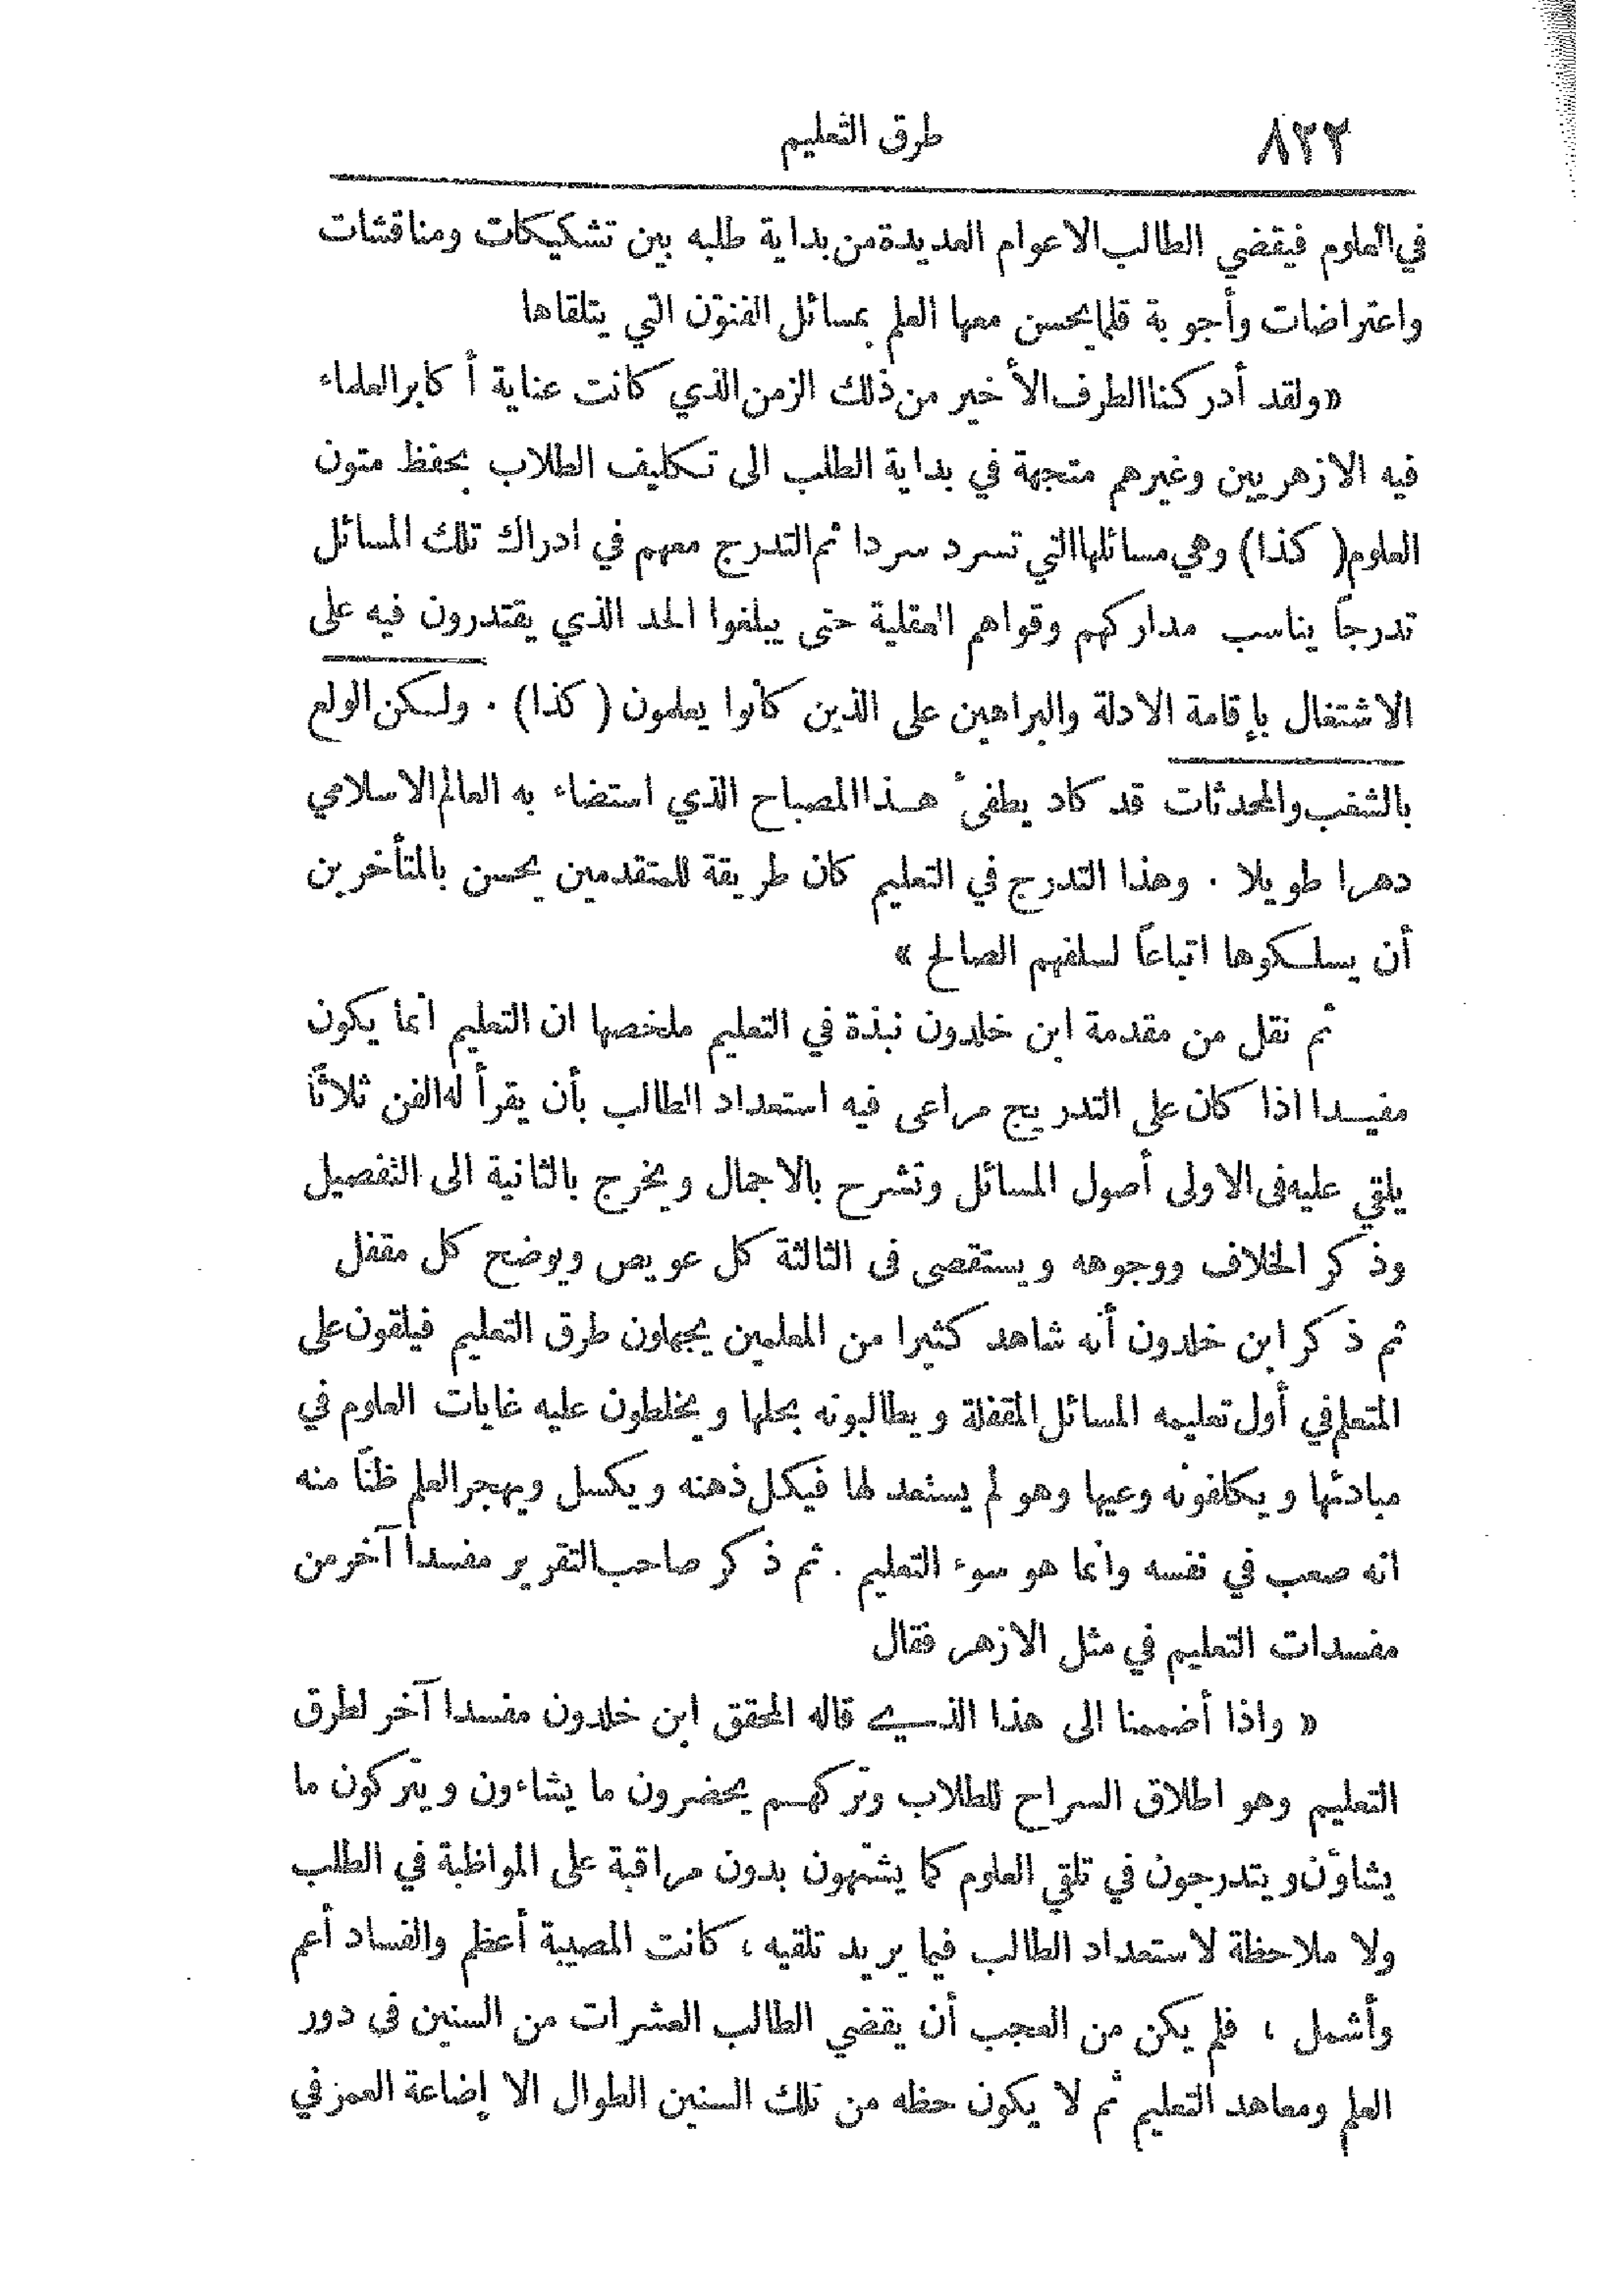 ٨٢٢ طرق التعليم
في العلوم فيقضي الطالب الاعوام العديدة من بداية طلبه بين تشكيكات ومناقشات
واعتراضات وأجوبة قلما يحسن معها العلم بمسائل الفنون التي يتلقاها
«ولقد أدركنا الطرف الأخير من ذلك الزمن الذي كانت عناية أكابر العلماء
فيه الازهريين وغيرهم متجهة في بداية الطلب الى تكليف الطلاب بحفظ متون
العلوم (كذا) وهي مسائلها التي تسرد سردا ثم التدرج معهم في ادراك تلك المسائل
تدرجاً يناسب مداركهم وقواهم العقلية حتى يبلغوا الحد الذي يقتدرون فيه على
الاشتغال بإقامة الادلة والبراهين على الذين كانوا يعلمون (كذا) . ولكن الولع
بالشغب والمحدثات قد كاد يطفئ هذا المصباح الذي استضاء به العالم الاسلامي
دهرا طويلا . وهذا التدرج في التعليم كان طريقة للمتقدمين يحسن بالمتأخرين
أن يسلكوها اتباعاً لسلفهم الصالح »
ثم نقل من مقدمة ابن خلدون نبذة في التعليم ملخصها ان التعليم انما يكون
مفيدا اذا كان على التدريج مراعى فيه استعداد الطالب بأن يقرأ له الفن ثلاثًا
يلقي عليه فى الاولى أصول المسائل وتشرح بالاجمال ويخرج بالثانية الى التفصيل
وذكر الخلاف ووجوهه ويستقصى فى الثالثة كل عويص ويوضح كل مقفل
ثم ذكر ابن خلدون أنه شاهد كثيرا من المعلمين يجهلون طرق التعليم فيلقون على
المتعلم في أول تعليمه المسائل المقفلة ويطالبونه بحلها ويخلطون عليه غايات العلوم في
مبادئها ويكلفونه وعيها وهو لم يستعد لها فيكل ذهنه ويكسل ويهجر العلم ظنًا منه
انه صعب في نفسه وانما هو سوء التعليم . ثم ذكر صاحب التقرير مفسدا آخر من
مفسدات التعليم في مثل الازهر فقال
« واذا أضممنا الى هذا الذي قاله المحقق ابن خلدون مفسدا آخر لطرق
التعليم وهو اطلاق السراح للطلاب وتركهم يحضرون ما يشاءون ويتركون ما
يشاؤن ويتدرجون في تلقي العلوم كما يشتهون بدون مراقبة على المواظبة في الطلب
ولا ملاحظة لاستعداد الطالب فيما يريد تلقيه ، كانت المصيبة أعظم والفساد أعم
وأشمل ، فلم يكن من العجب أن يقضي الطالب العشرات من السنين فى دور
العلم ومعاهد التعليم ثم لا يكون حظه من تلك السنين الطوال الا إضاعة العمر في